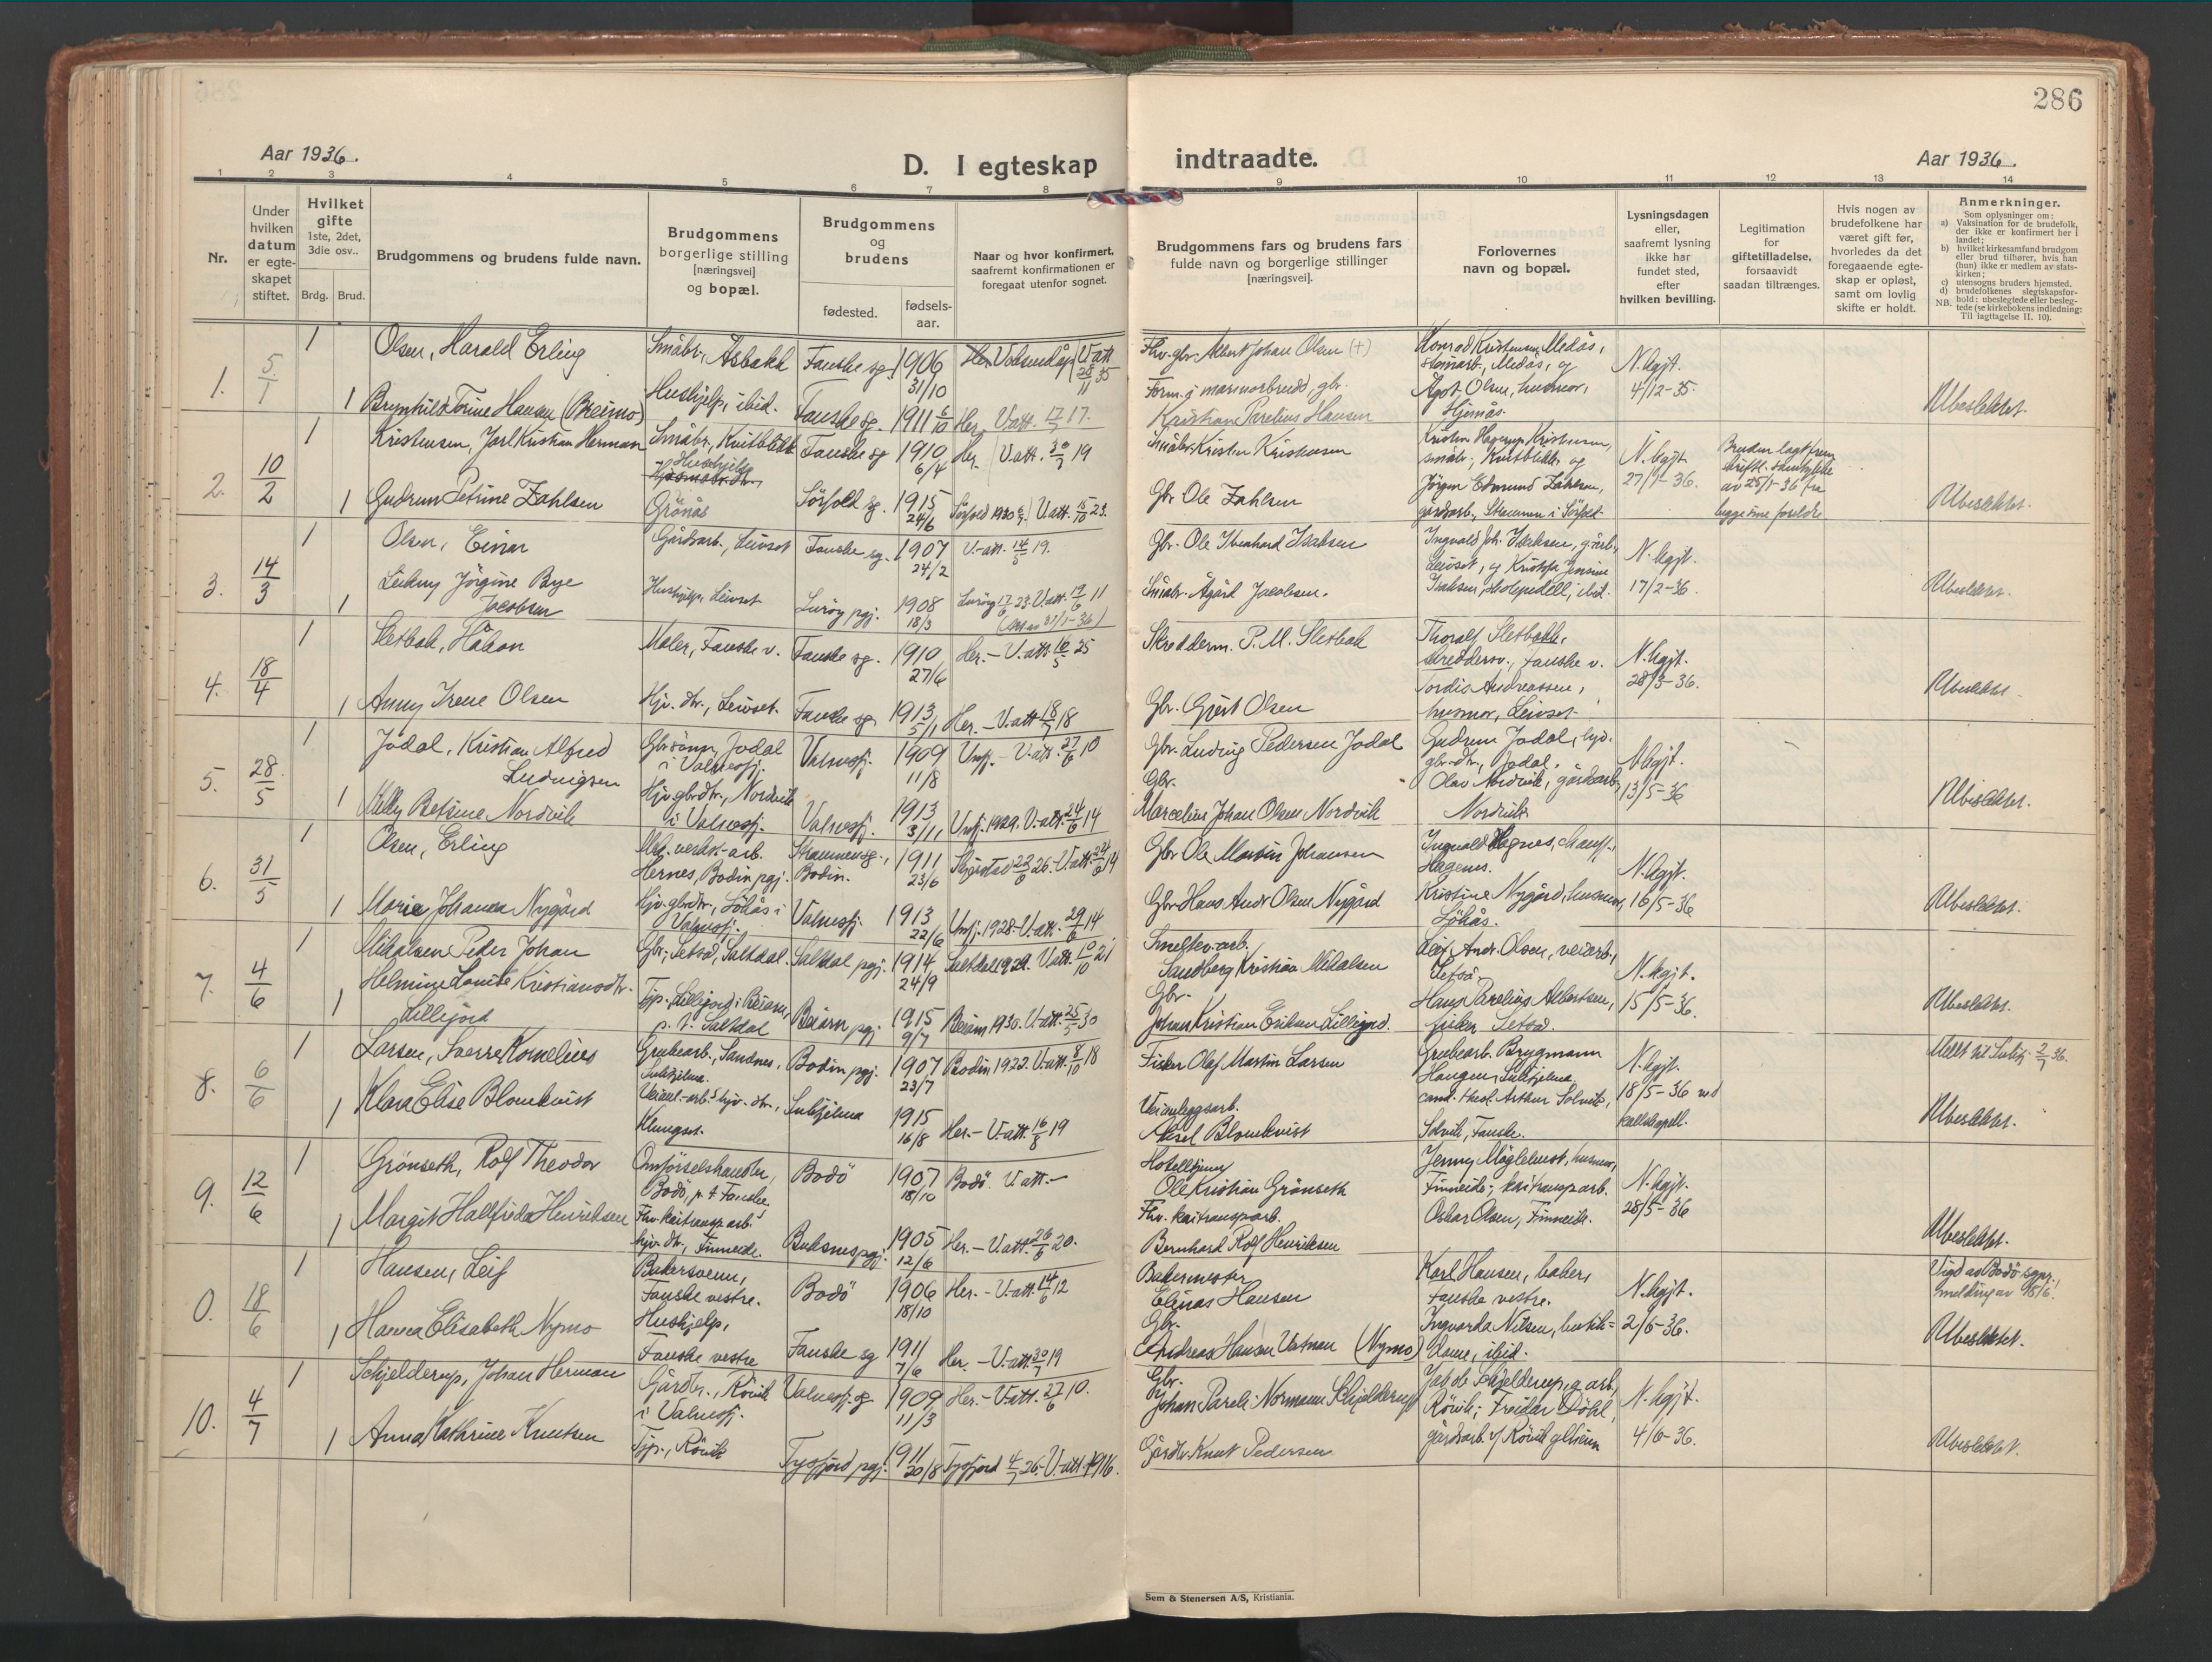 286
Aar 1936.
D. I egteskap indtraadte.
Aar 1936.
1 2 3 4 5 6 7 8 9 10 11 12 13 14
Nr.
Under hvilken datum er egteskapet stiftet.
Hvilket gifte 1ste, 2det, 3die osv..
Brdg. Brud.
Brudgommens og brudens fulde navn.
Brudgommens borgerlige stilling [næringsvei] og bopæl.
Brudgommens og brudens
fødested. fødselsaar.
Naar og hvor konfirmert, saafremt konfirmationen er foregaat utenfor sognet.
Brudgommens fars og brudens fars fulde navn og borgerlige stillinger [næringsvei].
Forlovernes navn og bopæl.
Lysningsdagen eller, saafremt lysning ikke har fundet sted, efter hvilken bevilling.
Legitimation for giftetilladelse, forsaavidt saadan tiltrænges.
Hvis nogen av brudefolkene har været gift før, hvorledes da det foregaaende egteskap er opløst, samt om lovlig skifte er holdt.
Anmerkninger.
Som oplysninger om:
a) Vaksination for de brudefolk, der ikke er konfirmert her i landet;
b) hvilket kirkesamfund brudgom eller brud tilhører, hvis han (hun) ikke er medlem av statskirken;
c) utensogns bruders hjemsted.
d) brudefolkenes slegtskapsforhold: ubeslegtede eller beslegtede (se kirkebokens indledning: Til iagttagelse II. 10).
NB.
1. 5/1
1 Olsen, Harald Erling Småbr., Åsbakk Fauske sg. 1906 31/10 V.att 28/11 35
Fhv. gbr Albert Johan Olsen (+) Konrad Kristensen, Medås, steinarb., Medås, og Agot Olsen, husmor, N.kgjt. 4/12-35
1 Brynhild Torine Hansen (Breimo) Hushjelp, ibid. Fauske sg. 1911 6/10 Her V.att. 17/7 17.
Form. i marmorbrudd, gbr. Kristian Parelius Hansen Ubeslektet.
2. 10/2
1 Kristensen, Jarl Kristian Herman Småbr., Kvitblikk Fauske sg 1910 6/4 Her. V.att. 30/7 19
Småbr Kristen Kristensen Kristen Hagerup Kristensen, småbr., Kvitblikk og N.kgjt. 27/1-36.
Bruden lagt frem skriftl. samtykke av 25/1-36 fra begge sine foreldre
1 Gudrun Petrine Zahlsen Hushjelp Grönås Sörfold sg. 1915 24/6 Sörfold 1930 V.att. 15/10 23.
Gbr Ole Zahlsen Jörgen Edmund Zahlsen, gårdsarb., Straumen i Sörfold Ubeslektet.
3. 14/3
1 Olsen, Einar Gårdsarb., Leivset Fauske sg. 1907 24/2 V.-att. 14/5 19.
Gbr. Ole Ibenhard Isaksen Ingvald Joh. Isaksen, g.arb., Leivset, og N.kgjt. 17/2-36.
1 Jörgine Bye Jacobsen Hushjelp, Leivset Luröy pgj. 1908 18/3 Luröy 17/6 23. V.att. 19/6 11
Småbr. Ågård Jacobsen. Ubeslektet.
4. 18/4
1 Sletbak, Håkon Maler, Fauske v. Fauske sg. 1910 27/6 Her.- V.att. 16/5 25
Skredderm. P. M. Sletbak Thoralf Sletbakk, skreddersv., Fauske v. N.kgjt. 28/3-36.
1 Anny Irene Olsen Hjv. dtr., Leivset. Fauske sg. 1913 5/1 Her.- V.att 18/7 18
Gbr. Gjert Olsen Tordis Andreassen, husmor, Leivset Ubeslektet.
5. 28/5
1 Jodal, Kristian Alfred Ludvigsen Gbr.sönn, Jodal i Valnesfj. Valnesfj. 1909 11/8 V.att. 27/6 10
Gbr. Ludvig Pedersen Jodal Gudrun Jodal, hjv. gbr-dtr., Jodal. N.kgjt. 13/5-36
1 Betsine Nordvik Hjv. gbrdtr., Nordvik i Valnesfj. Valnesfj. 1913 3/11 1929. V.-att. 24/6 14
Gbr. Marcelius Johan Olsen Nordvik Olav Nordvik, gårdsarb, Nordvik Ubeslektet.
6. 31/5
1 Olsen, Erling Hernes, Bodin pgj. Straumen sg., Bodin. 1911 23/6 V.att. 24/6 14
Gbr Ole Martin Johansen Ingvald Hagnes, N.kgjt. 16/5-36
1 Marie Johanna Nygård Hjv. gbrdtr., Lökås i Valnesfj. Valnesfj. 1913 22/6 1928-V.att. 29/6 14
Gbr Hans Andr Olsen Nygård Kristine Nygård, husmor, Lökås. Ubeslektet.
7. 4/6
1 Mikalsen Peder Johan Gbr., Setså, Saltdal. Saltdal pgj. 1914 24/9 Saltdal 1929. V.att. 10/10 21
Smeltev.arb. Sandberg Kristian Mikalsen Leif Andr. Olsen, veiarb., Setså N.kgjt. 15/5-36.
1 Helmine Lovise Kristiansdtr. Lilligjord Tjp. Lilligjord i Beiarn, p.t. Saltdal Beiarn pgj. 1915 9/7 Beiarn 1930. V.-att. 25/5 30
Gbr. Johan Kristian Eriksen Lilligjord. Hans Parelius Albertsen, fisker Setså. Ubeslektet.
8. 6/6
1 Larsen, Sverre Kornelius Grubearb., Sandnes, Sulitjelma. Bodin pgj. 1907 23/7 Bodin 1922. V.att. 8/10 18
Fisker Olaf Martin Larsen Grubearb. Brygmann Haugen, Sulitjelma N.kgjt. 18/5-36 ved kallskapell.
Meldt til Sulitj. 2/7 36.
1 Klara Elise Blomkvist Veianl.-arb.s hjv. dtr., Klungset. Sulitjelma 1915 16/8 Her.- V.att. 16/8 19
Veianleggsarb. Aksel Blomkvist cand. theol. Arthur Solvik, Solvik, Fauske. Ubeslektet.
9. 12/6
1 Grönseth, Rolf Theodor Omförselshandler, Bodö, p.t. Fauske Bodö 1907 18/10 Bodö. V.att.-
Ole Kristian Grönseth Jenny Mögleheist, husmor, Finneid; kaitransparb. N.kgjt. 28/5-36
1 Margit Hallfrida Henriksen Fhv. kaitransp.arb.s hjv. dtr., Finneide. Buksnes pgj. 1905 12/6 Her.- V.att. 26/6 20.
Fhv. kaitransparb. Bernhard Rolf Henriksen Oskar Olsen, Finneid. Ubeslektet.
0. 18/6
1 Hansen, Leif Bakersvenn, Fauske vestre. Bodö 1906 18/10 Her.- V.att. 14/6 12
Bakermester Elinas Hansen Karl Hansen, baker, Fauske vestre. N.kgjt. 2/6-36.
Vigd av Bodö sgpr., melding av 18/6.
1 Hanna Elisabeth Nymo Hushjelp, Fauske vestre Fauske sg 1911 7/6 Her. - V.att. 30/7 19
Gbr. Andreas Hansen Vatnan (Nymo) Ingvarda Nilsen, butikdame, ibid. Ubeslektet.
10. 4/7
1 Schjelderup, Johan Herman Gårdbr., Rövik i Valnesfj. Valnesfj. sg 1909 11/3 Her.- V.att. 27/6 10.
Gbr. Johan Pareli Normann Schjelderup Jakob Schjelderup, g.arb, Rövik; N.kgjt. 4/6-36.
1 Anna Kathrine Knutsen Tjp., Rövik Tysfjord pgj. 1911 20/8 Tysfjord 4/7 26- V.att 1916.
Gårdbr Knut Pedersen Freidar Döhl, gårdsarb. Rövik Ubeslektet.
Sem & Stenersen A/S, Kristiania.